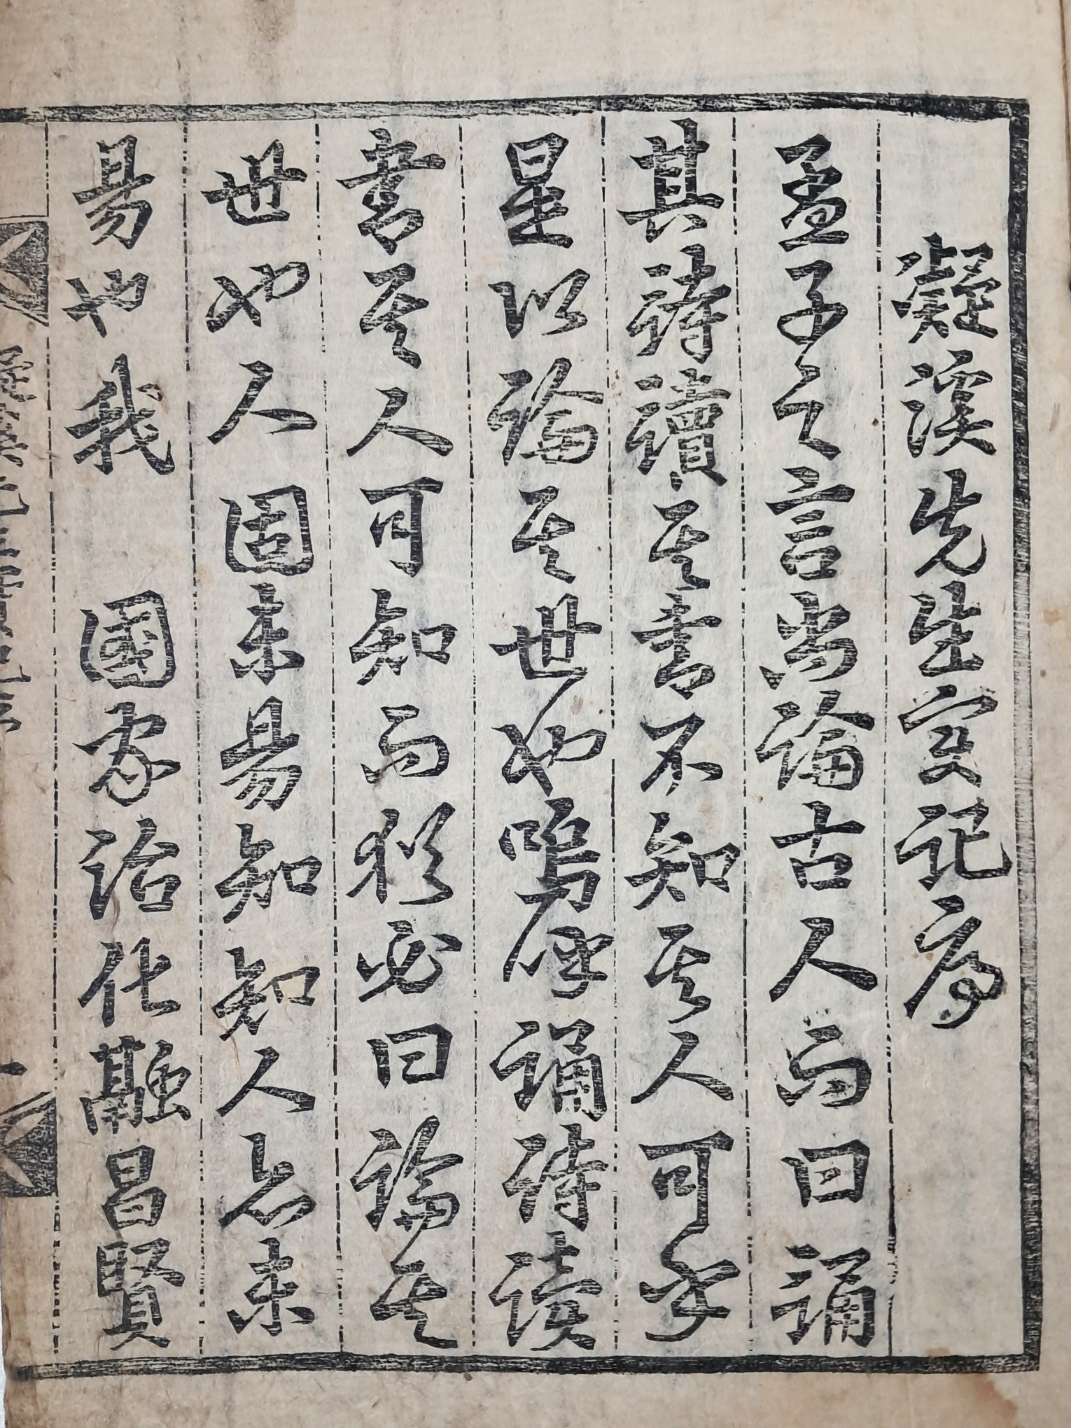 凝溪先生实記序
孟子之言尚論古人而曰誦
其詩讀其書不知其人可乎
是以論其世也嗚呼誦詩讀
書其人可知而猶必曰論其
世也人固未易知知人亦未
易也我 國家治化融昌賢